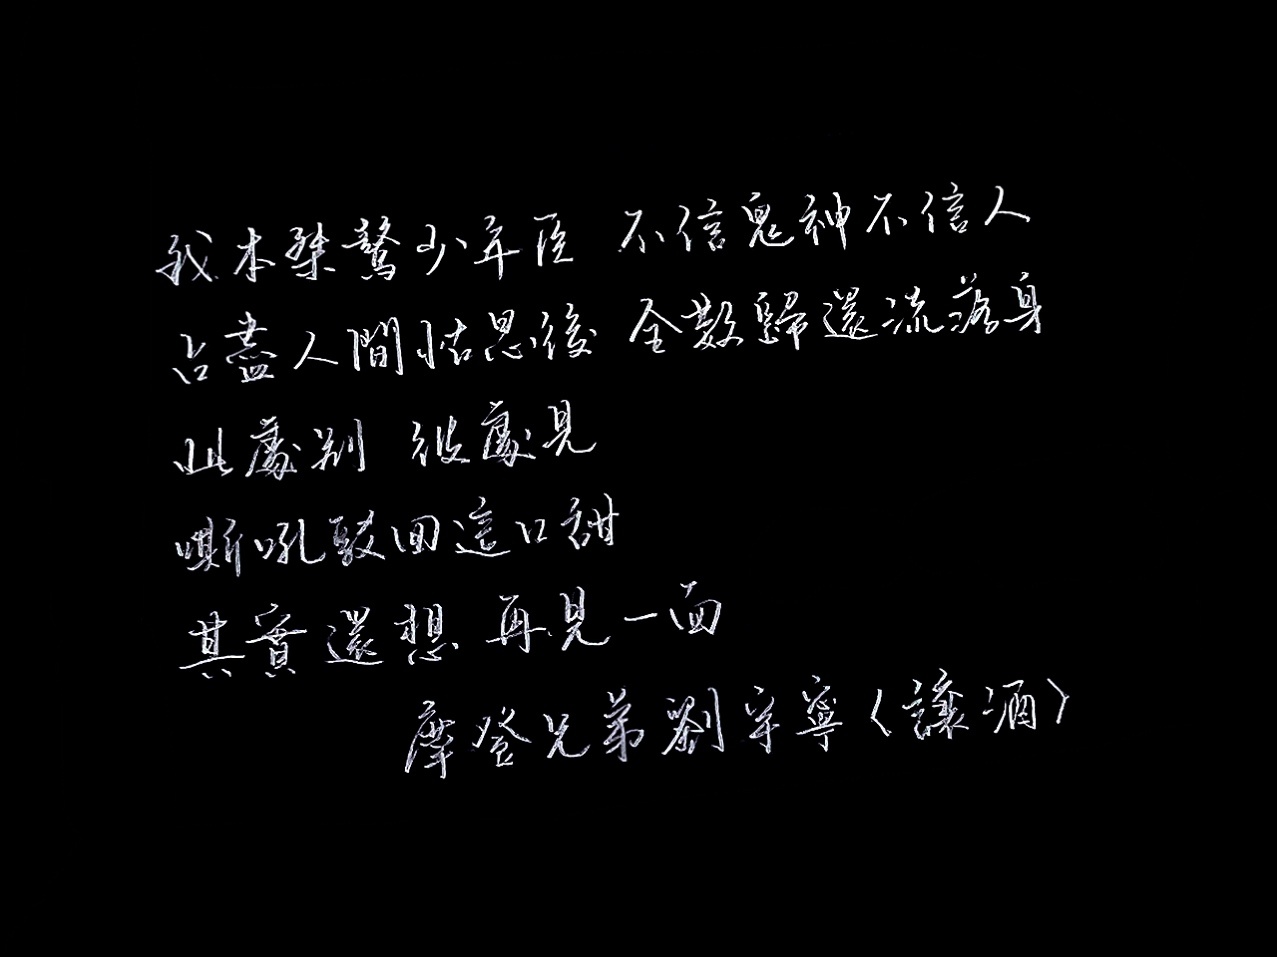 我本桀驁少年臣 不信鬼神不信人
占盡人間怙恩後 全數歸還流落身
此處別 彼處見
嘶吼駁回這口甜
其實還想 再見一面
摩登兄弟劉宇寧〈讓酒〉